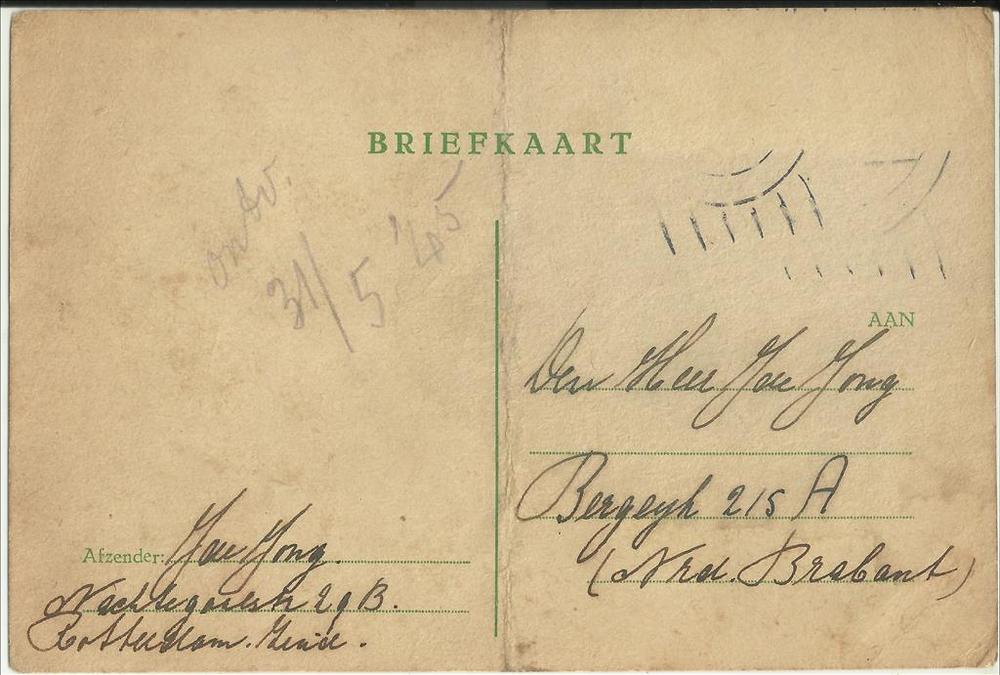 BRIEFKAART
ontv.
31/5 '45
AAN
Den Heer J de Jong
Bergeyk 215 A
(Nrd. Brabant)
Afzender: J de Jong.
Nachtegaalstr 29 B.
Rotterdam. Zuid.